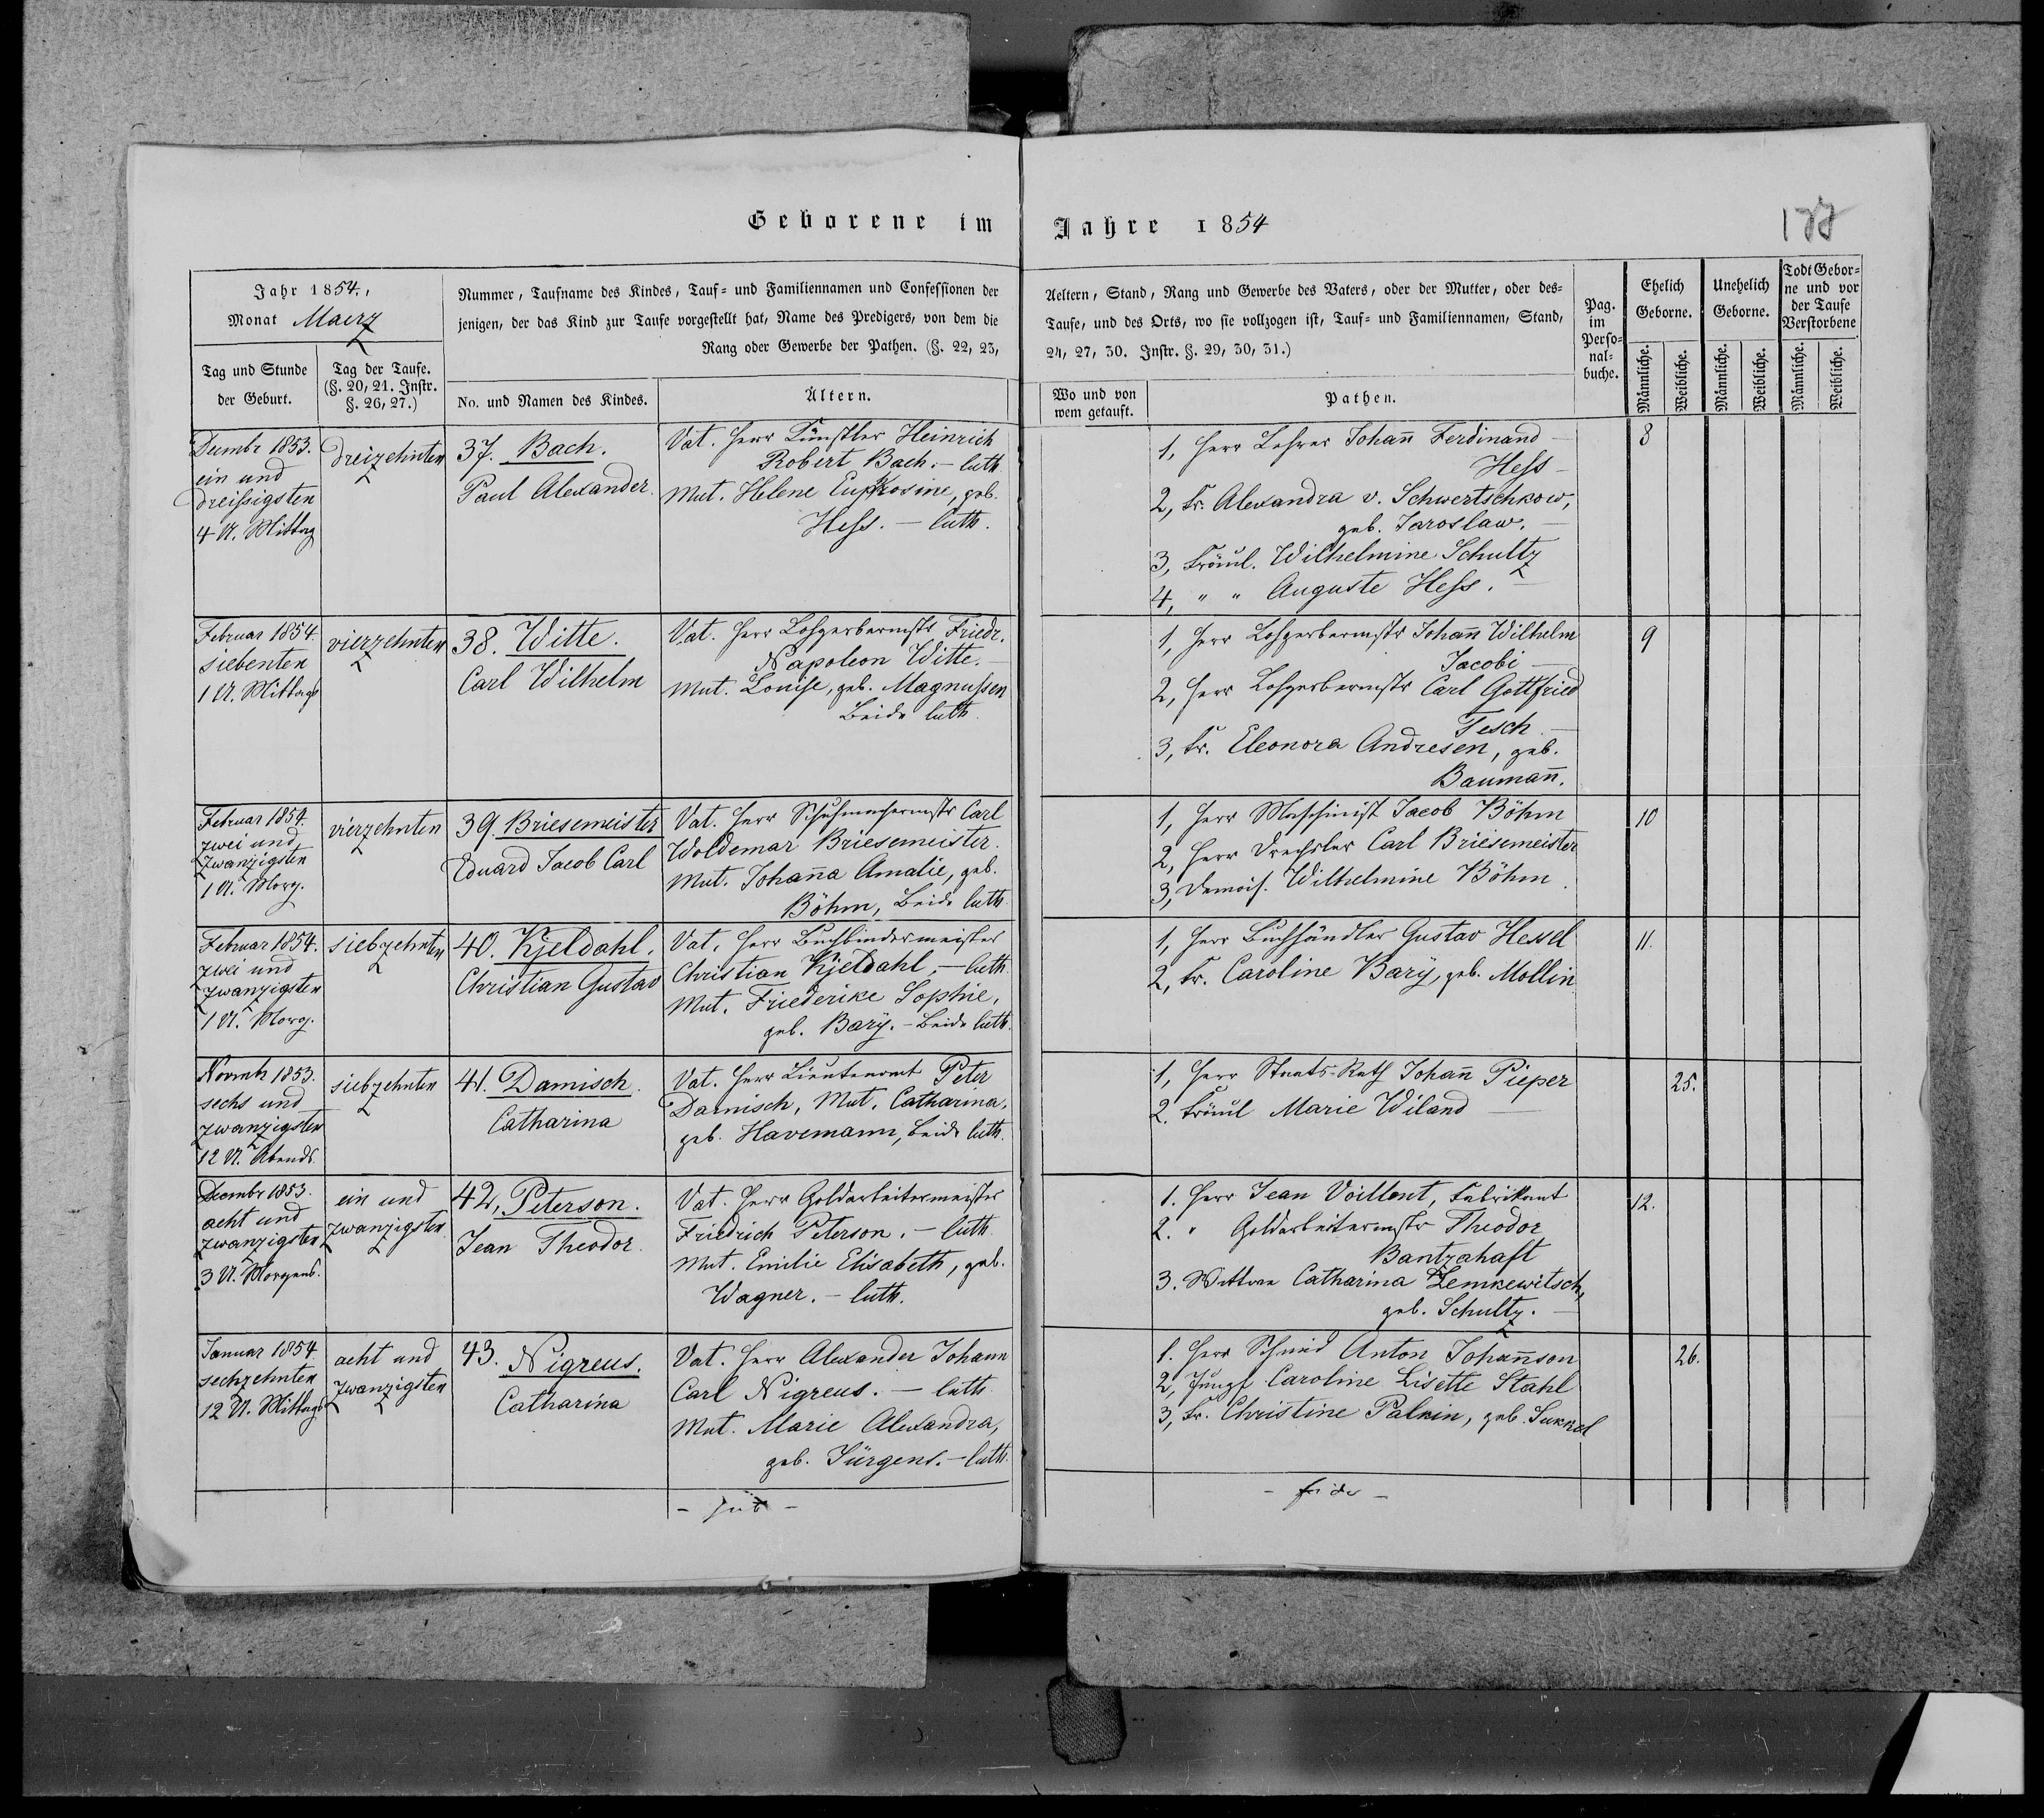 Geborene im Jahre 1854
Jahr 1854.,
Monat Maerz
Nummer, Taufname des Kindes, Tauf- und Familiennamen und Confessionen der
jenigen, der das Kind zur Taufe vorgestellt hat, Name des Predigers, von dem die
Rang oder Gewerbe der Pathen. (§. 22, 23,
Tag und Stunde
der Geburt.
Tag der Taufe.
(§. 20, 21. Instr.
§. 26, 27.)
No. und Namen des Kindes.
Ältern.
Aeltern, Stand, Rang und Gewerbe des Vaters, oder der Mutter, oder des-
Taufe, und des Orts, wo sie vollzogen ist, Tauf- und Familiennamen, Stand,
24, 27, 30. Instr. §. 29, 30, 31.)
Wo und von
wem getauft.
Pathen.
Pag.
im
Perso-
nal-
buche.
Ehelich
Geborne.
Unehelich
Geborne.
Todt Gebor-
ne und vor
der Taufe
Verstorbene
Männliche.
Weibliche.
Männliche.
Weibliche.
Männliche.
Weibliche.
Decmbr 1853.
ein und
dreissigsten
4 U. Mittag
dreizehnten
37. Bach.
Paul Alexander.
Vat. Herr Künstler Heinrich
Robert Bach. – luth.
Mut. Helene Euphrosine, geb.
Hess. – luth.
1, Herr Lehrer Johann Ferdinand
Hess –
2, Fr. Alexandra v. Schwertschkow,
geb. Jaroslaw. –
3, Fräul. Wilhelmine Schultz
4, " " Auguste Hess. –
8
Februar 1854.
siebenten
1 U. Mittags
vierzehnten
38. Witte.
Carl Wilhelm
Vat. Herr Lohgerbermstr Friedr.
Napoleon Witte. –
Mut. Louise, geb. Magnussen
Beide luth.
1, Herr Lohgerbermstr Johann Wilhelm
Jacobi –
2, Herr Lohgerbermstr Carl Gottfried
Tesch. –
3, Fr. Eleonora Andresen, geb.
Baumann.
9
Februar 1854.
zwei und
zwanzigsten
1 U. Morg.
vierzehnten
39. Briesemeister
Eduard Jacob Carl
Vat. Herr Schuhmachermstr Carl
Woldemar Briesemeister.
Mut. Johanna Amalie, geb.
Böhm, Beide luth.
1, Herr Maschinist Jacob Böhm
2, Herr Drechsler Carl Briesemeister
3, Demois. Wilhelmine Böhm.
10
Februar 1854.
zwei und
zwanzigsten
1 U. Morg.
siebzehnten
40. Kjeldahl.
Christian Gustav
Vat. Herr Buchbindermeister
Christian Kjeldahl, – luth.
Mut. Friederike Sophie,
geb. Barÿ. – Beide luth.
1, Herr Buchhändler Gustav Hessel
2, Fr. Caroline Barÿ, geb. Mollin
11.
Novmbr 1853.
sechs und
zwanzigsten
12 U. Abends.
siebzehnten
41. Damisch.
Catharina
Vat. Herr Lieutenant Peter
Damisch, Mut. Catharina,
geb. Havemann, Beide luth.
1, Herr Staats-Rath Johann Pieper
2. Fräul Marie Wiland –
25.
Decmbr 1853.
acht und
zwanzigsten
3 U. Morgens.
ein und
zwanzigsten
42, Peterson.
Jean Theodor.
Vat. Herr Goldarbeitermeister
Friedrich Peterson. – luth.
Mut. Emilie Elisabeth, geb.
Wagner. – luth.
1. Herr Jean Voillont, Fabrikant
2. " Goldarbeitermstr Theodor
Bantzahaft
3. Wittwe Catharina Zemkewitsch,
geb. Schultz. –
12.
Januar 1854
sechzehnten
12 U. Mittags
acht und
zwanzigsten
43. Nigreus.
Catharina
Vat. Herr Alexander Johann
Carl Nigreus. – luth.
Mut. Marie Alexandra,
geb. Jürgens. – luth.
1. Herr Schmid Anton Johannson
2, Jungf. Caroline Lisette Stahl
3, Fr. Christine Palkin, geb. Sukkel
26.